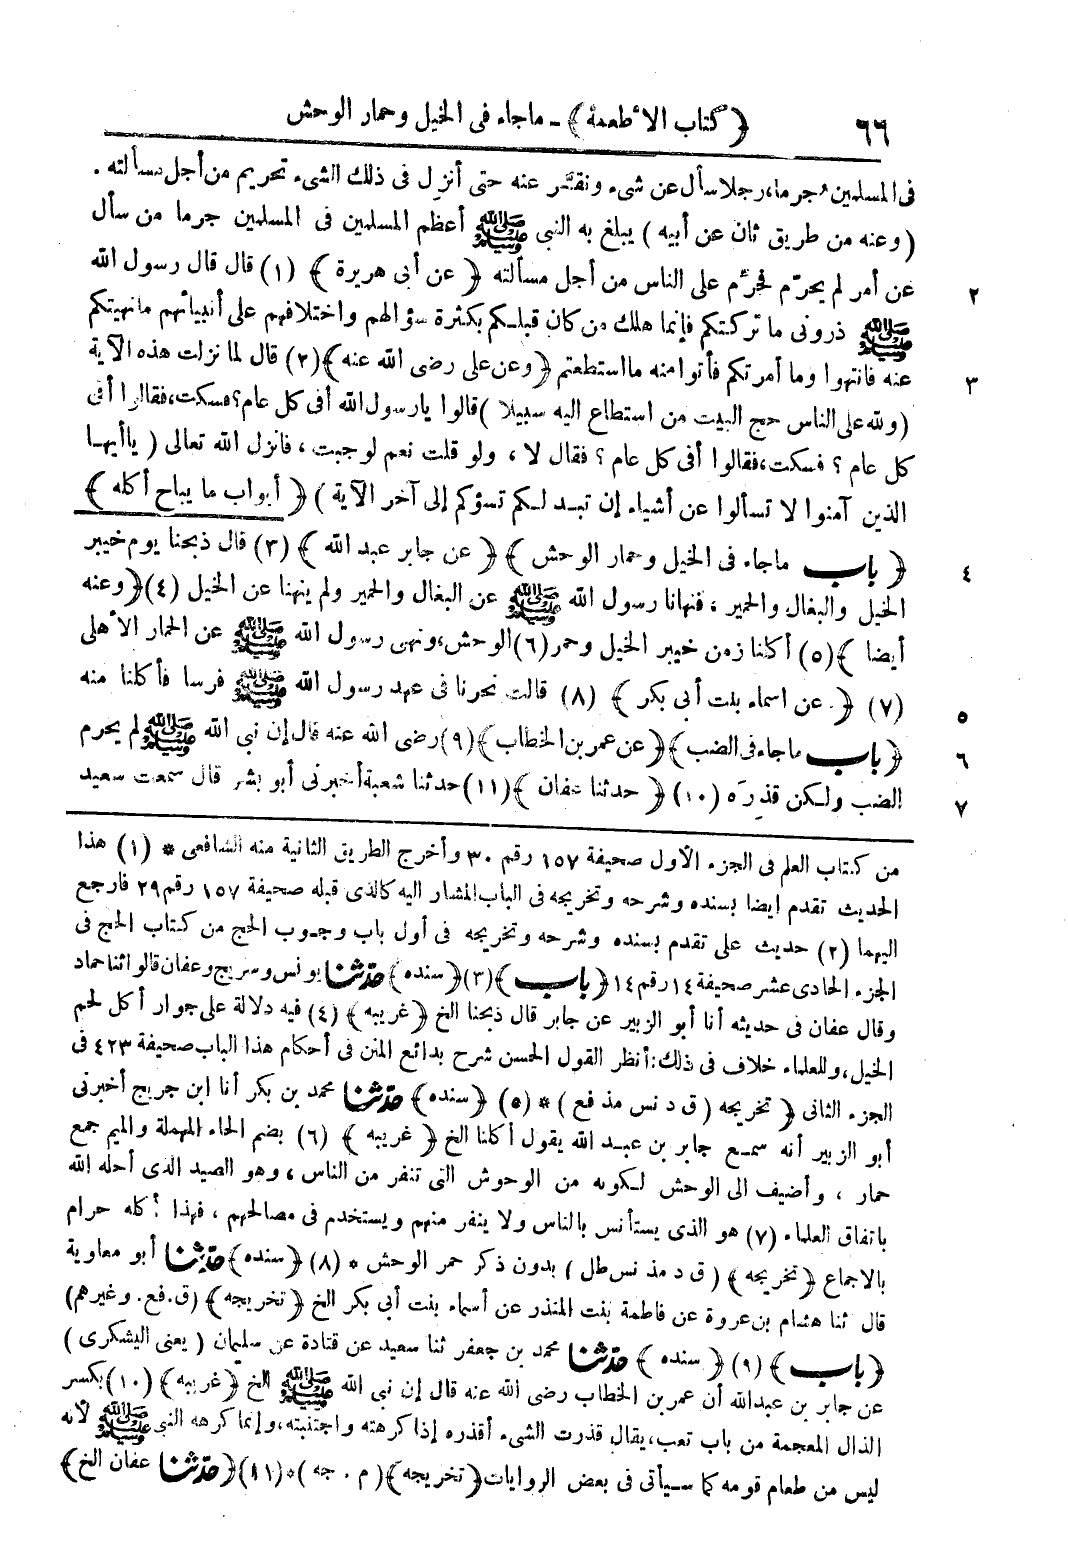 ٦٦ ﴿ كتاب الأطعمة ﴾ ـ ماجاء فى الخيل وحمار الوحش
فى المسلمين جرما، رجلا سأل عن شىء ونقّر عنه حتى أنزل فى ذلك الشىء تحريم من أجل مسألته .
( وعنه من طريق ثان عن أبيه ) يبلغ به النبى ﷺ أعظم المسلمين فى المسلمين جرما من سأل
٢ عن أمر لم يحرّم فحرّم على الناس من أجل مسألته ﴿ عن أبى هريرة ﴾ (١) قال قال رسول الله
ﷺ ذرونى ما تركتكم فإنما هلك من كان قبلكم بكثرة سؤالهم واختلافهم على أنبيائهم مانهيتكم
٣ عنه فانتهوا وما أمرتكم فأتوا منه ما استطعتم ﴿ وعن على رضى الله عنه ﴾ (٢) قال لما نزلت هذه الآية
( ولله على الناس حج البيت من استطاع اليه سبيلا ) قالوا يارسول الله أفى كل عام؟ فسكت، فقالوا أفى
كل عام ؟ فسكت، فقالوا أفى كل عام ؟ فقال لا ، ولو قلت نعم لوجبت ، فأنزل الله تعالى ( يا أيهـا
الذين آمنوا لا تسألوا عن أشياء إن تبـد لـكم تسؤكم إلى آخر الآية ) ﴿ أبواب ما يباح أكله ﴾
٤ ﴿ باب ماجاء فى الخيل وحمار الوحش ﴾ ﴿ عن جابر عبد الله ﴾ (٣) قال ذبحنا يوم خيبر
الخيل والبغال والحمير ، فنهانا رسول الله ﷺ عن البغال والحمير ولم ينهنا عن الخيل (٤) ﴿ وعنه
أيضا ﴾ (٥) أكلنا زمن خيبر الخيل وحمر (٦) الوحش، ونهى رسول الله ﷺ عن الحمار الأهلى
٥ (٧) ﴿ عن اسماء بنت أبى بكر ﴾ (٨) قالت نحرنا فى عهد رسول الله ﷺ فرسا فأكلنا منه
٦ ﴿ باب ماجاء فى الضب ﴾ ﴿ عن عمر بن الخطاب ﴾ (٩) رضى الله عنه قال إن نبى الله ﷺ لم يحرم
٧ الضب ولـكن قذره (١٠) ﴿ حدثنا عفان ﴾ (١١) حدثنا شعبة أخبرنى أبو بشر قال سمعت سعيد
من كتاب العلم فى الجزء الأول صحيفة ١٥٧ رقم ٣٠ وأخرج الطريق الثانية منه الشافعى * (١) هذا
الحديث تقدم ايضا بسنده وشرحه وتخريجه فى الباب المشار اليه كالذى قبله صحيفة ١٥٧ رقم ٢٩ فارجع
اليهما (٢) حديث على تقدم بسنده وشرحه وتخريجه فى أول باب وجوب الحج من كتاب الحج فى
الجزء الحادى عشر صحيفة ١٤ رقم ١٤ ﴿ باب ﴾ (٣) ﴿ سنده ﴾ حدّثنا يونس وسريج وعفان قالوا ثنا حماد
وقال عفان فى حديثه أنا أبو الزبير عن جابر قال ذبحنا الخ ﴿ غريبه ﴾ (٤) فيه دلالة على جوار أكل لحم
الخيل، وللعلماء خلاف فى ذلك: أنظر القول الحسن شرح بدائع المنن فى أحكام هذا الباب صحيفة ٤٢٣ فى
الجزء الثانى ﴿ تخريجه ( ق د نس مذ فع ) * (٥) ﴿ سنده ﴾ حدّثنا محمد بن بكر أنا ابن جريج أخبرنى
أبو الزبير أنه سمـع جابر بن عبـد الله يقول أكلنا الخ ﴿ غريبه ﴾ (٦) بضم الحاء المهملة والميم جمع
حمار ، وأضيف الى الوحش لـكونه من الوحوش التى تنفر من الناس ، وهو الصيد الذى أحله الله
باتفاق العلماء (٧) هو الذى يستأنس بالناس ولا ينفر منهم ويستخدم فى مصالحهم ، فهذا أكله حرام
بالاجماع ﴿ تخريجه ﴾ ( ق د مذ نس طل ) بدون ذكر حمر الوحش * (٨) ﴿ سنده ﴾ حدّثنا أبو معاوية
قال ثنا هشام بن عروة عن فاطمة بنت المنذر عن أسماء بنت أبى بكر الخ ﴿ تخريجه ﴾ (ق. فع. وغيرهم)
﴿ باب ﴾ (٩) ﴿ سنده ﴾ حدّثنا محمد بن جعفر ثنا سعيد عن قتادة عن سليمان ( يعنى اليشكرى )
عن جابر بن عبدالله أن عمر بن الخطاب رضى الله عنه قال إن نبى الله ﷺ الخ ﴿ غريبه ﴾ (١٠) بكسر
الذال المعجمة من باب تعب، يقال قذرت الشىء أقذره إذا كرهته واجتنبته، وإنما كرهه النبى ﷺ لأنه
ليس من طعام قومه كما سـيأتى فى بعض الروايات ﴿ تخريجه ﴾ ( م . جه ) * (١١) ﴿ حدّثنا عفان الخ ﴾